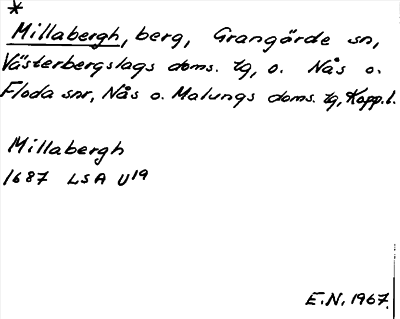 *
Millabergh, berg, Grangärde sn,
Västerbergslags doms. tg, o. Nås o.
Floda snr, Nås o. Malungs doms. tg, Kopp.l.
Millabergh
1687 LSA U19
E.N. 1967.